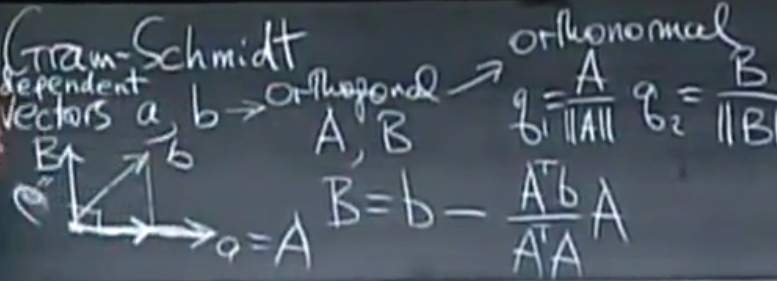 Gram-Schmidt
dependent
vectors a, b → orthogonal → orthonormal
A, B
q₁ = A/||A|| q₂ = B/||B
B
b
a = A
B = b − Aᵀb/AᵀA A